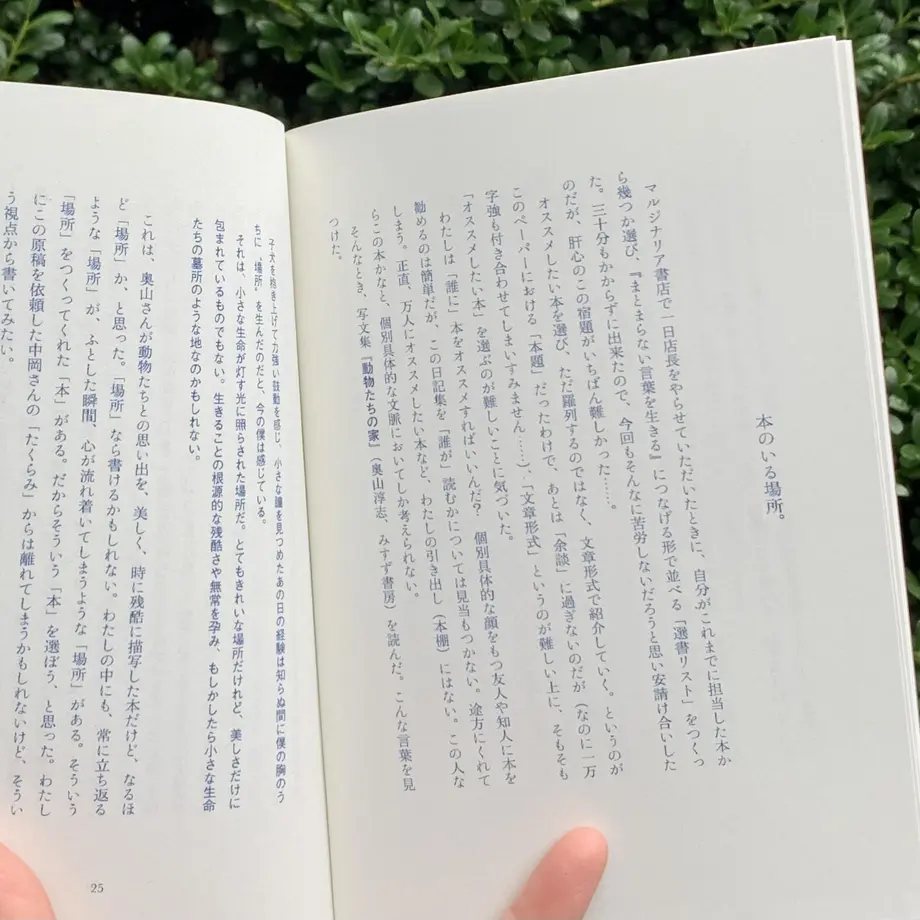 本のいる場所。
マルジナリア書店で一日店長をやらせていただいたときに、自分がこれまでに担当した本か
ら幾つか選び、『まとまらない言葉を生きる』につなげる形で並べる「選書リスト」をつくっ
た。三十分もかからずに出来たので、今回もそんなに苦労しないだろうと思い安請け合いした
のだが、肝心のこの宿題がいちばん難しかった……。
オススメしたい本を選び、ただ羅列するのではなく、文章形式で紹介していく。というのが
このペーパーにおける「本題」だったわけで、あとは「余談」に過ぎないのだが（なのに一万
字強も付き合わせてしまいすみません……）、「文章形式」というのが難しい上に、そもそも
「オススメしたい本」を選ぶのが難しいことに気づいた。
わたしは「誰に」本をオススメすればいいんだ？　個別具体的な顔をもつ友人や知人に本を
勧めるのは簡単だが、この日記集を「誰が」読むかについては見当もつかない。途方にくれて
しまう。正直、万人にオススメしたい本など、わたしの引き出し（本棚）にはない。この人な
らこの本かなと、個別具体的な文脈においてしか考えられない。
そんなとき、写文集『動物たちの家』（奥山淳志、みすず書房）を読んだ。こんな言葉を見
つけた。
子犬を抱き上げて力強い鼓動を感じ、小さな瞳を見つめたあの日の経験は知らぬ間に僕の胸のう
ちに〝場所〟を生んだのだと、今の僕は感じている。
それは、小さな生命が灯す光に照らされた場所だ。とてもきれいな場所だけれど、美しさだけに
包まれているものでもない。生きることの根源的な残酷さや無常を孕み、もしかしたら小さな生命
たちの墓所のような地なのかもしれない。
これは、奥山さんが動物たちとの思い出を、美しく、時に残酷に描写した本だけど、なるほ
ど「場所」か、と思った。「場所」なら書けるかもしれない。わたしの中にも、常に立ち返る
ような「場所」が、ふとした瞬間、心が流れ着いてしまうような「場所」がある。そういう
「場所」をつくってくれた「本」がある。だからそういう「本」を選ぼう、と思った。わたし
にこの原稿を依頼した中岡さんの「たくらみ」からは離れてしまうかもしれないけど、そうい
う視点から書いてみたい。
25